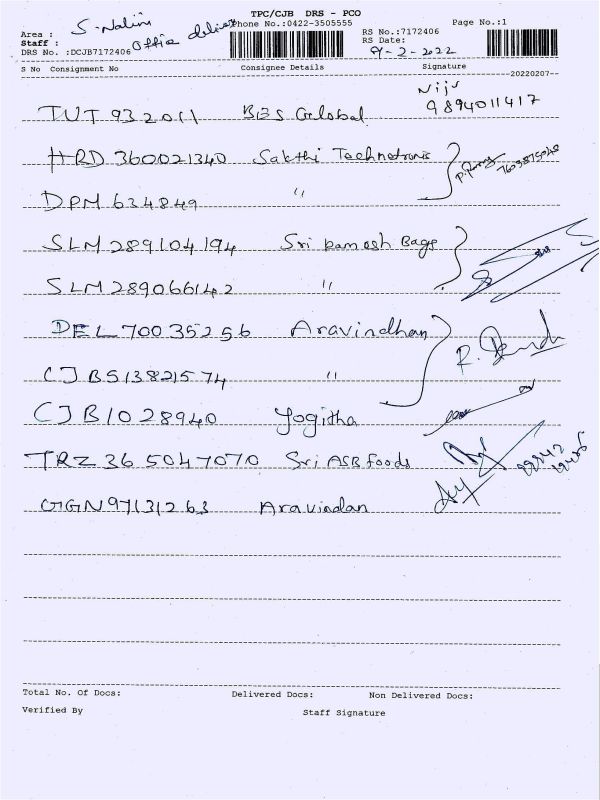 TPC/CJB DRS - PCO
S. Nalini Office delivery Phone No.:0422-3505555 Page No.:1
Area : RS No.:7172406
Staff : RS Date: 9-2-2022
DRS No. :DCJB7172406
S No Consignment No Consignee Details Signature
20220207
TUT 932011 BBS Global Niju 9894011417
HRD 360021340 Sakthi Technotronic
DPM 634849 "
SLM 289104194 Sri Ramesh Bags
SLM 289066142 "
DEL 70035256 Aravindhan
CJB 513821574 "
CJB 1028940 Yogitha
TRZ 365047070 Sri ASB Foods
GGN 97131263 Aravindan
Total No. Of Docs: Delivered Docs: Non Delivered Docs:
Verified By Staff Signature